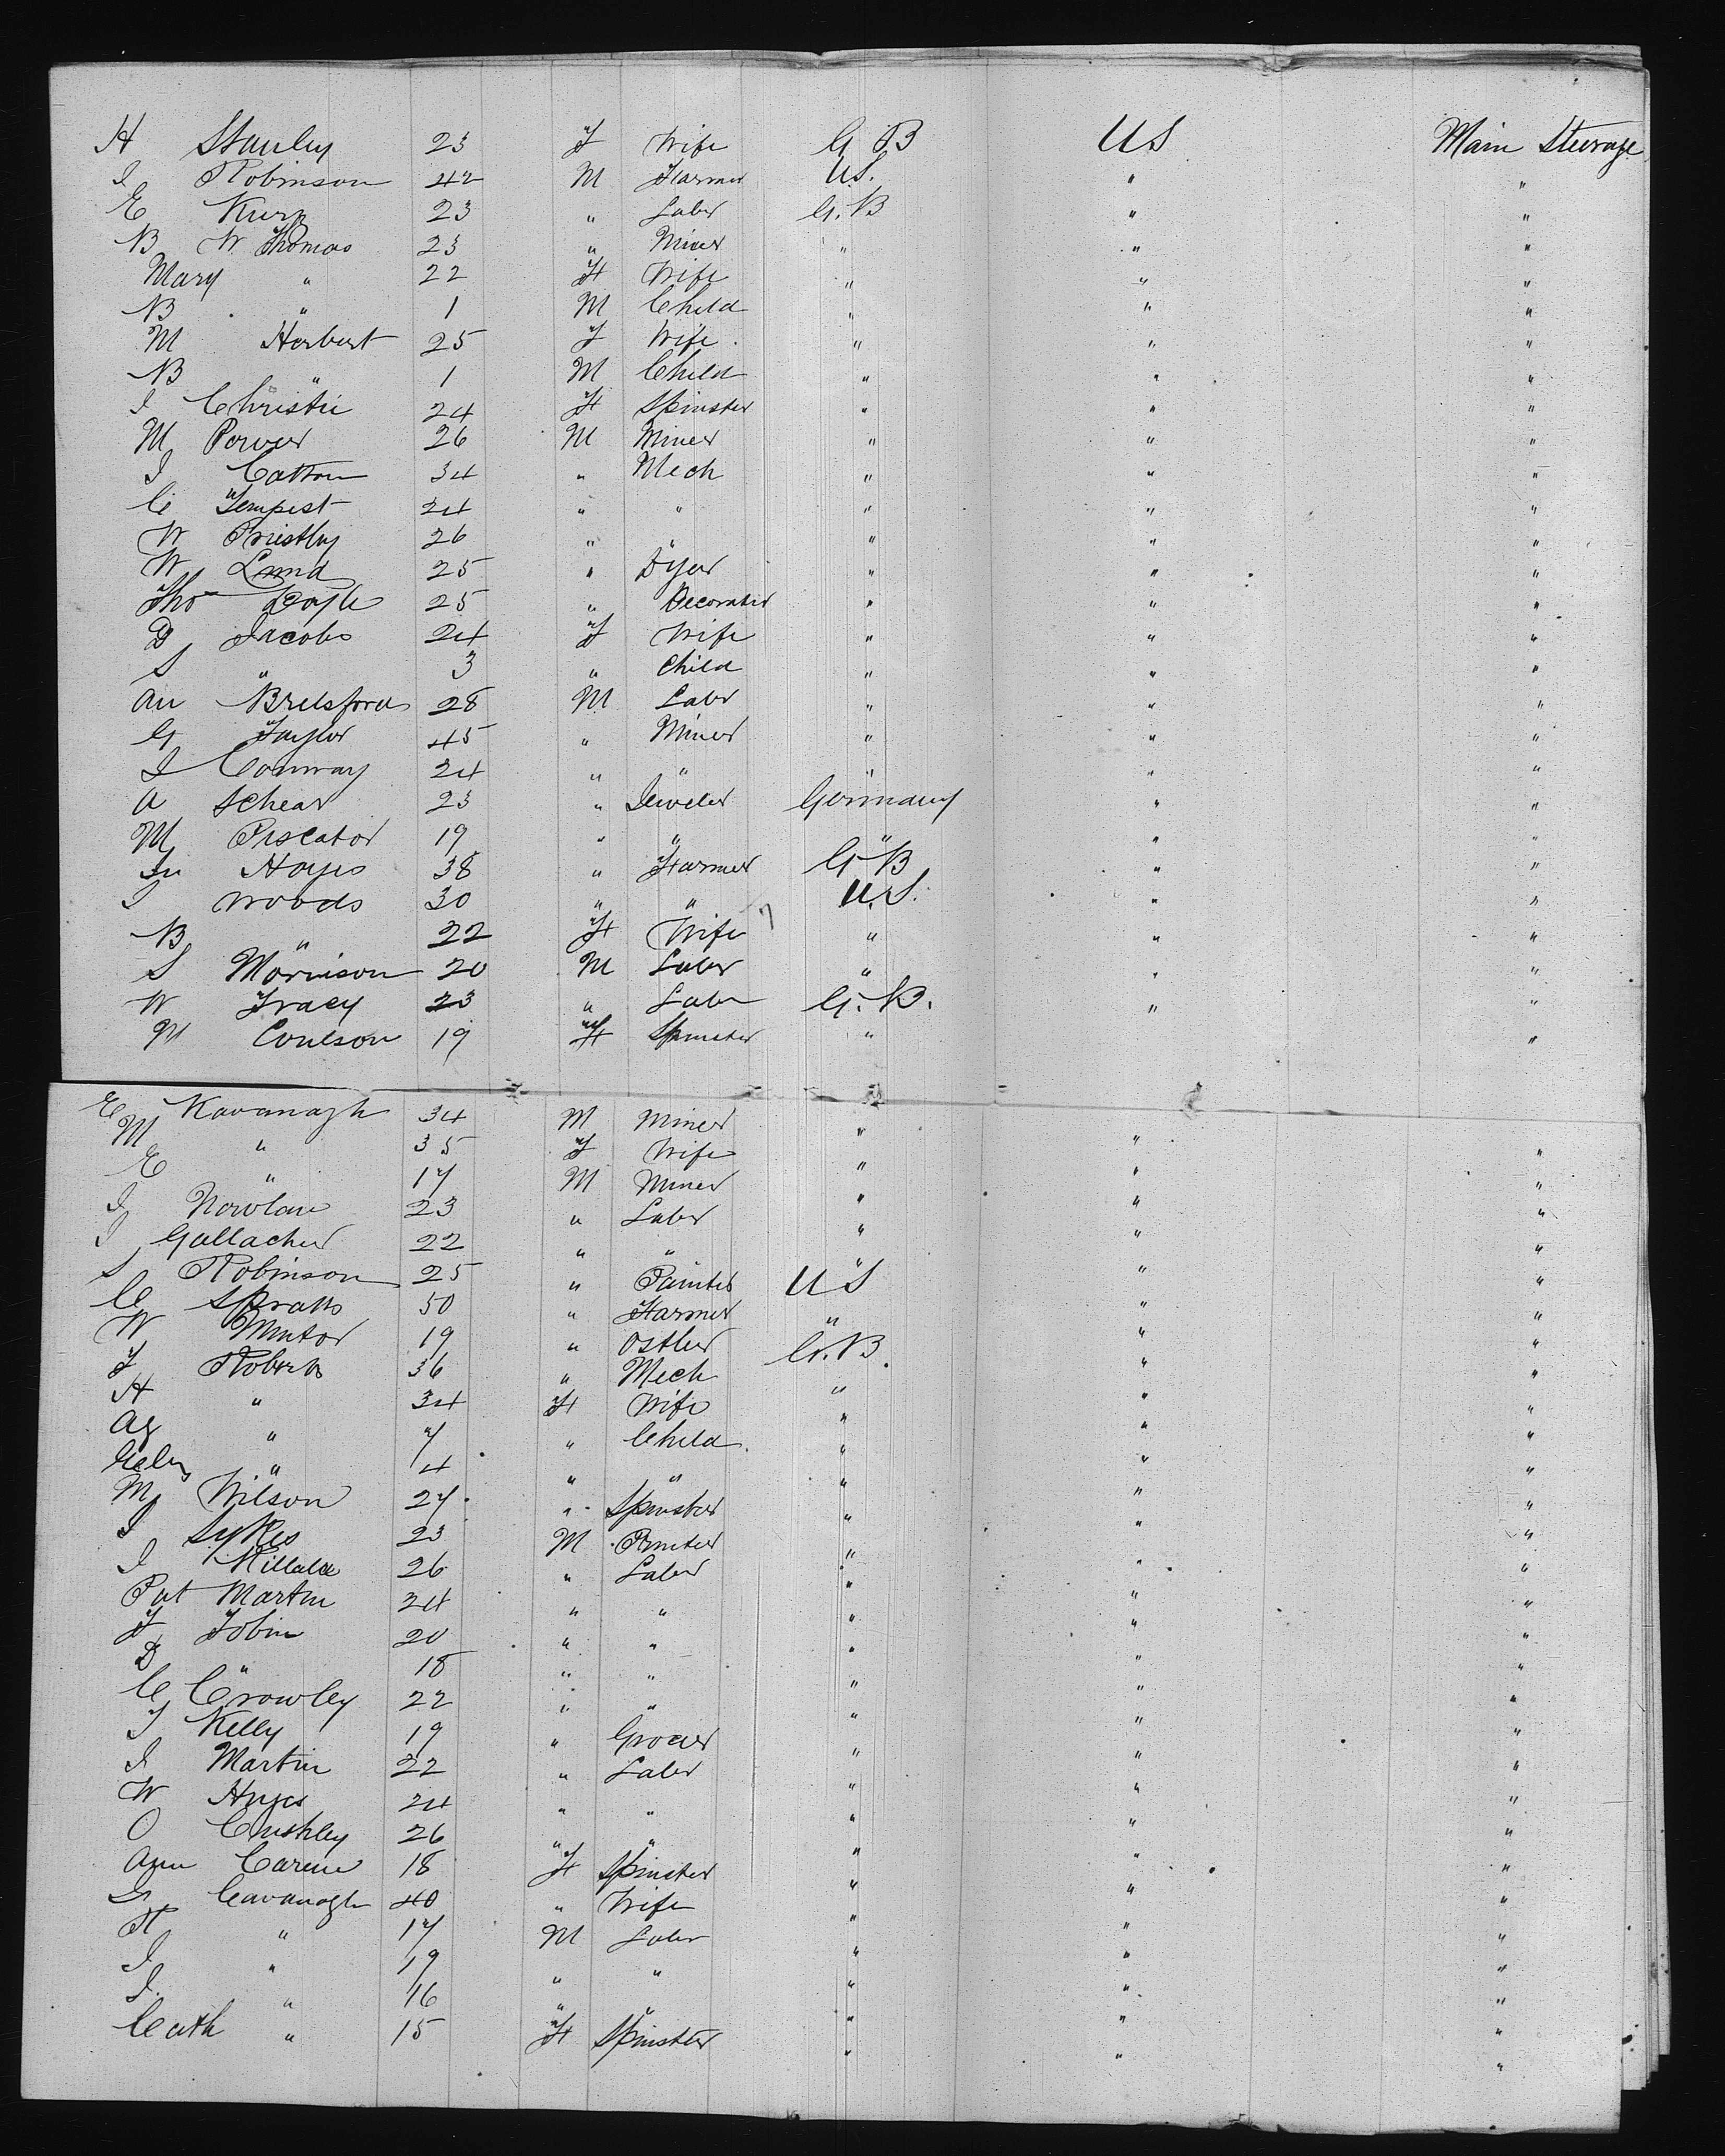 H Stanley 23 F Wife G B US Main Steerage
J Robinson 42 M Farmer US. " "
E Kurz 23 " Labr G. B " "
B W. Thomas 23 " Miner " " "
Mary " 22 F Wife " " "
B " 1 M Child " " "
M Herbert 25 F Wife " " "
B " 1 M Child " " "
J Christie 24 F Spinster " " "
M Power 26 M Miner " " "
J Catton 34 " Mech " " "
C Tempest 24 " " " " "
W Priestley 26 " " " " "
W Lund 25 " Dyer " " "
Tho Doyle 25 " Decorator " " "
D Jacobs 24 F Wife " " "
S " 3 " Child " " "
An Brelsford 28 M Labr " " "
G Taylor 45 " Miner " " "
J Conway 24 " " " " "
A Schear 23 " Jeweler Germany " "
M Piscator 19 " " " " "
Jn Hayes 38 " Farmer G B " "
J Woods 30 " " U.S. " "
B " 22 F Wife " " "
S Morrison 20 M Labr " " "
W Tracy 23 " Labr G. B. " "
M Coulson 19 F Spinster " "
E Kavanagh 34 M Miner " " "
M " 35 F Wife " " "
E " 17 M Miner " " "
J Nowlan 23 " Labr " " "
J Gallacher 22 " " " " "
S Robinson 25 " Painter US " "
C Spratts 50 " Farmer " " "
W Mintor 19 " Ostler G. B. " "
F Roberts 36 " Mech " " "
H " 34 F Wife " " "
Ag " 7 " Child " " "
" 4 " " " " "
M Wilson 27 " Spinster " " "
J Sykes 23 M Printer " " "
J Killalee 26 " Labr " " "
Pat Martin 24 " " " " "
F Tobin 20 " " " " "
D " 18 " " " " "
C Crowley 22 " " " " "
J Kelly 19 " Grocer " " "
J Martin 22 " Labr " " "
W Hayes 24 " " " " "
O Cushley 26 " " " " "
Ann Carene 18 F Spinster " " "
Cavanagh 40 " Wife " " "
H " 17 M Labr " " "
J " 19 " " " " "
J. " 16 " " " " "
Cath " 15 F Spinster " " "